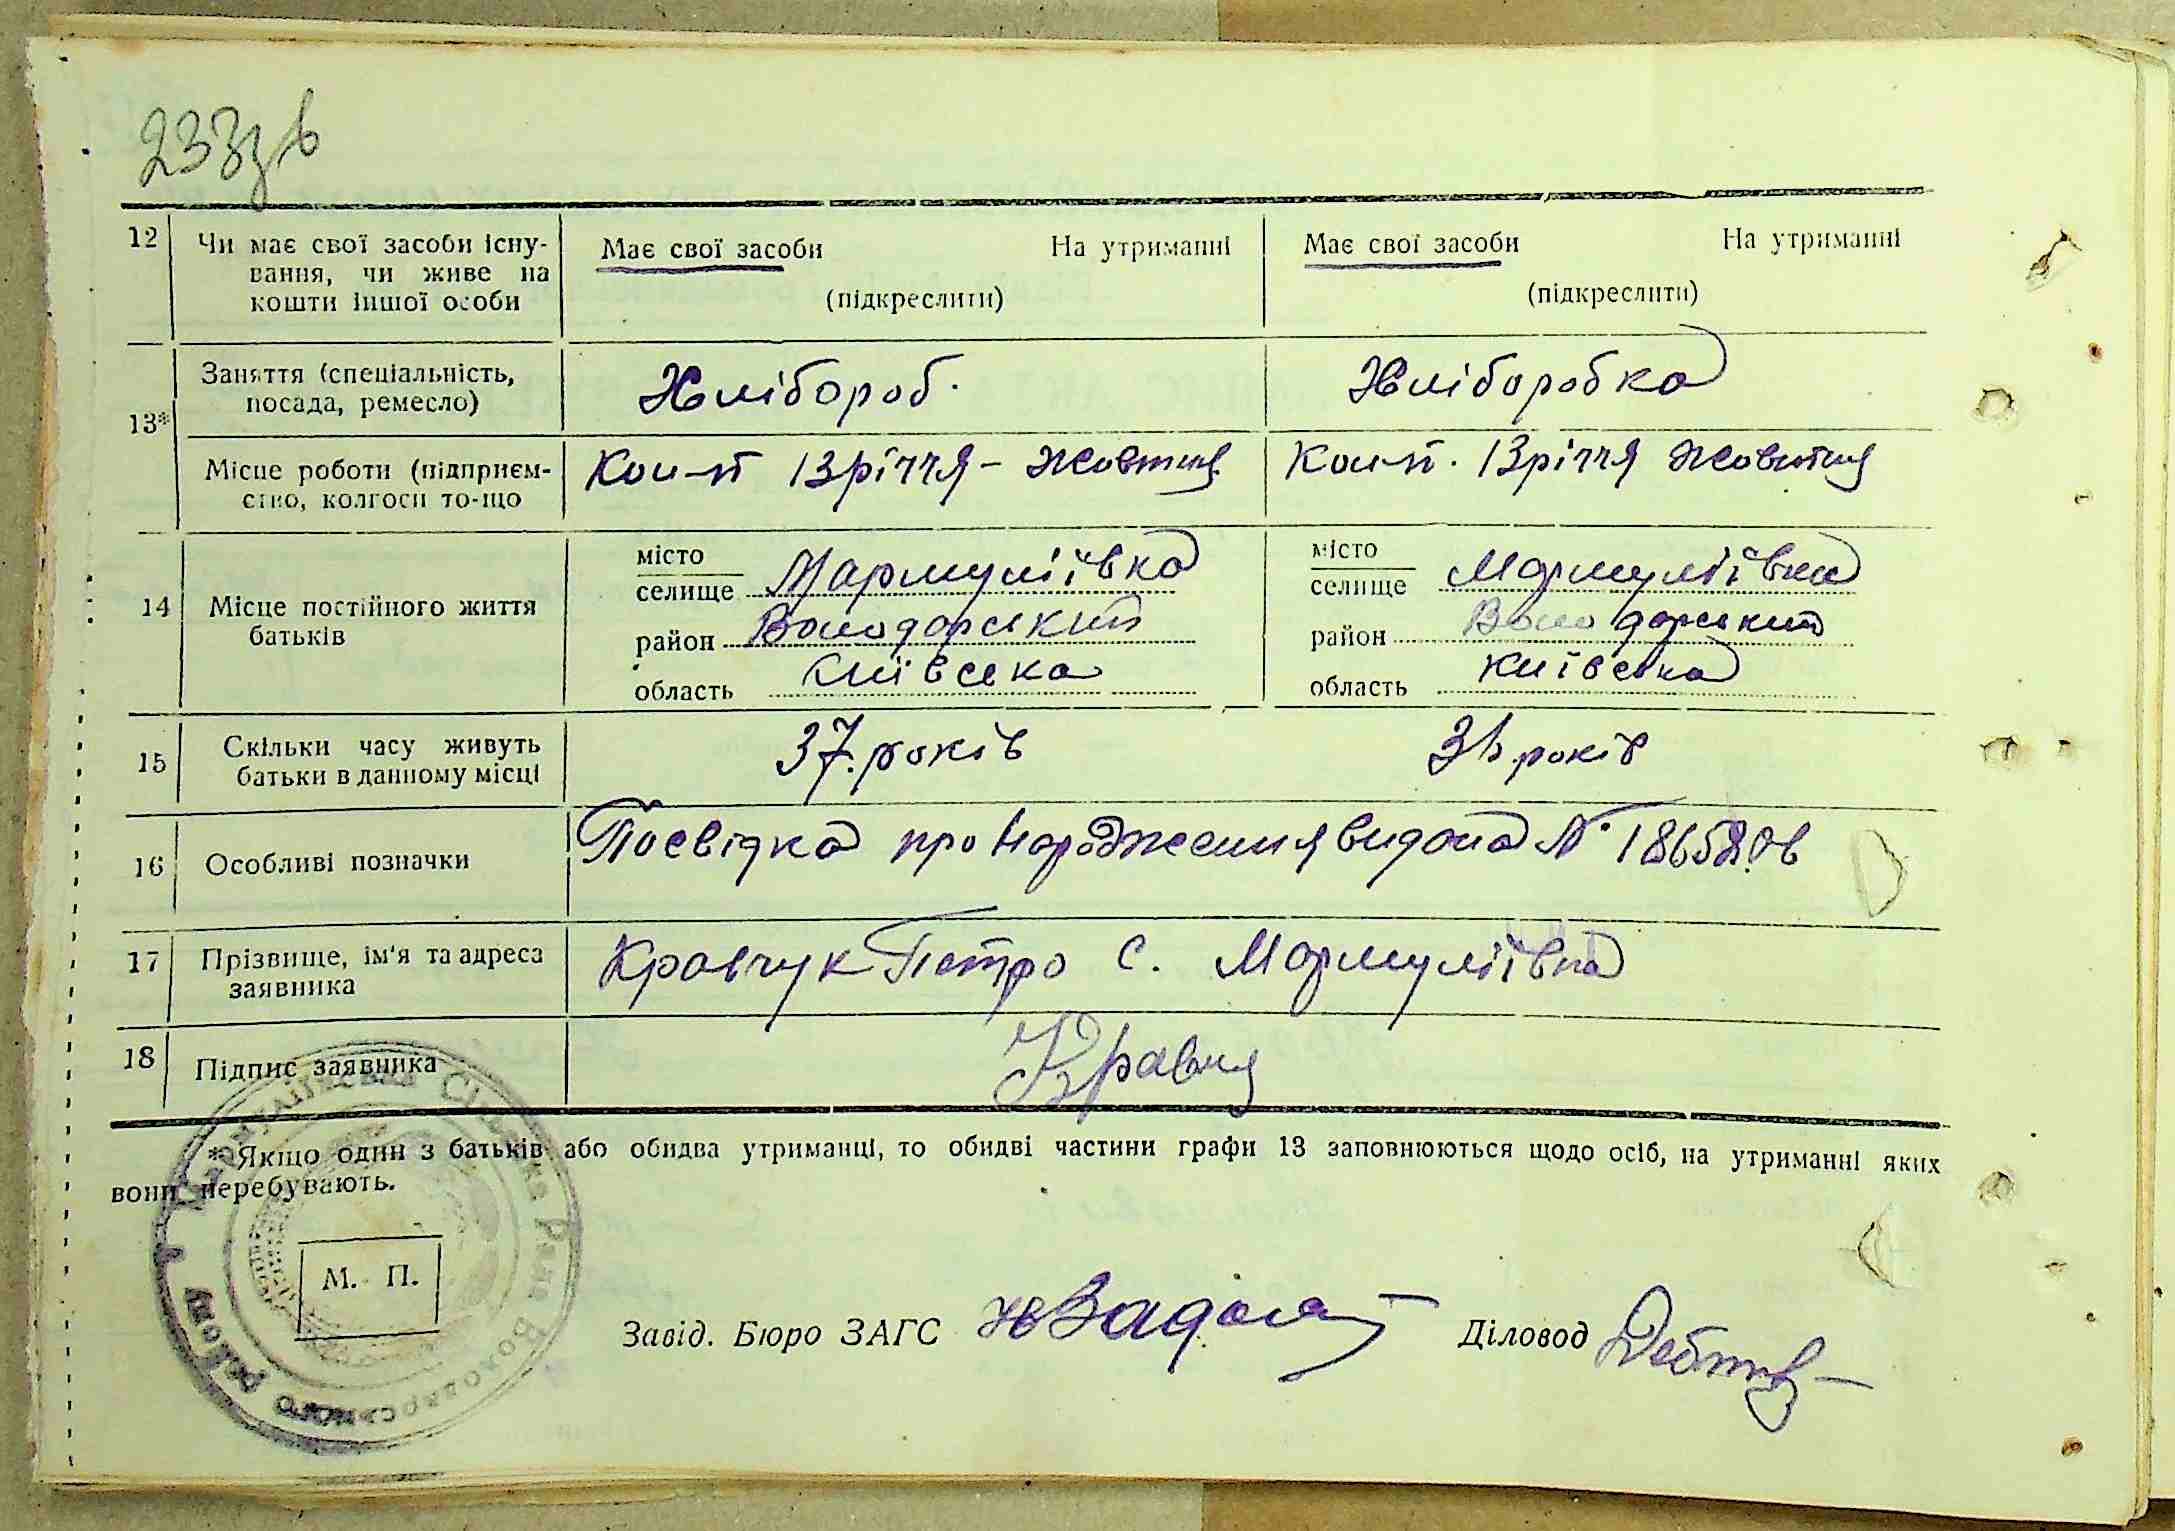 233зв
12 Чи має свої засоби існу- Має свої засоби На утриманні Має свої засоби На утриманні
вання, чи живе на
кошти іншої особи (підкреслити) (підкреслити)
Заняття (спеціальність, Хлібороб. Хліборобка
посада, ремесло)
13*
Місце роботи (підприєм- Кол-п 13 річчя - Жовтня Кол-п. 13 річчя Жовтня
ство, колгосп то-що
місто місто
селище Мармуліївка селище Мармуліївка
14 Місце постійного життя
батьків район Володарський район Володарський
область Київська область Київська
15 Скільки часу живуть 37. років років
батьки в данному місці
16 Особливі позначки Посвідка про народження видана №
17 Прізвище, ім'я та адреса Кравчук Петро С. Мармуліївка
заявника
18 Підпис заявника Кравчу
* Якщо один з батьків або обидва утриманці, то обидві частини графи 13 заповнюються щодо осіб, на утриманні яких
вони перебувають.
М. П.
Завід. Бюро ЗАГС Діловод
Сільська Рада Володарського району